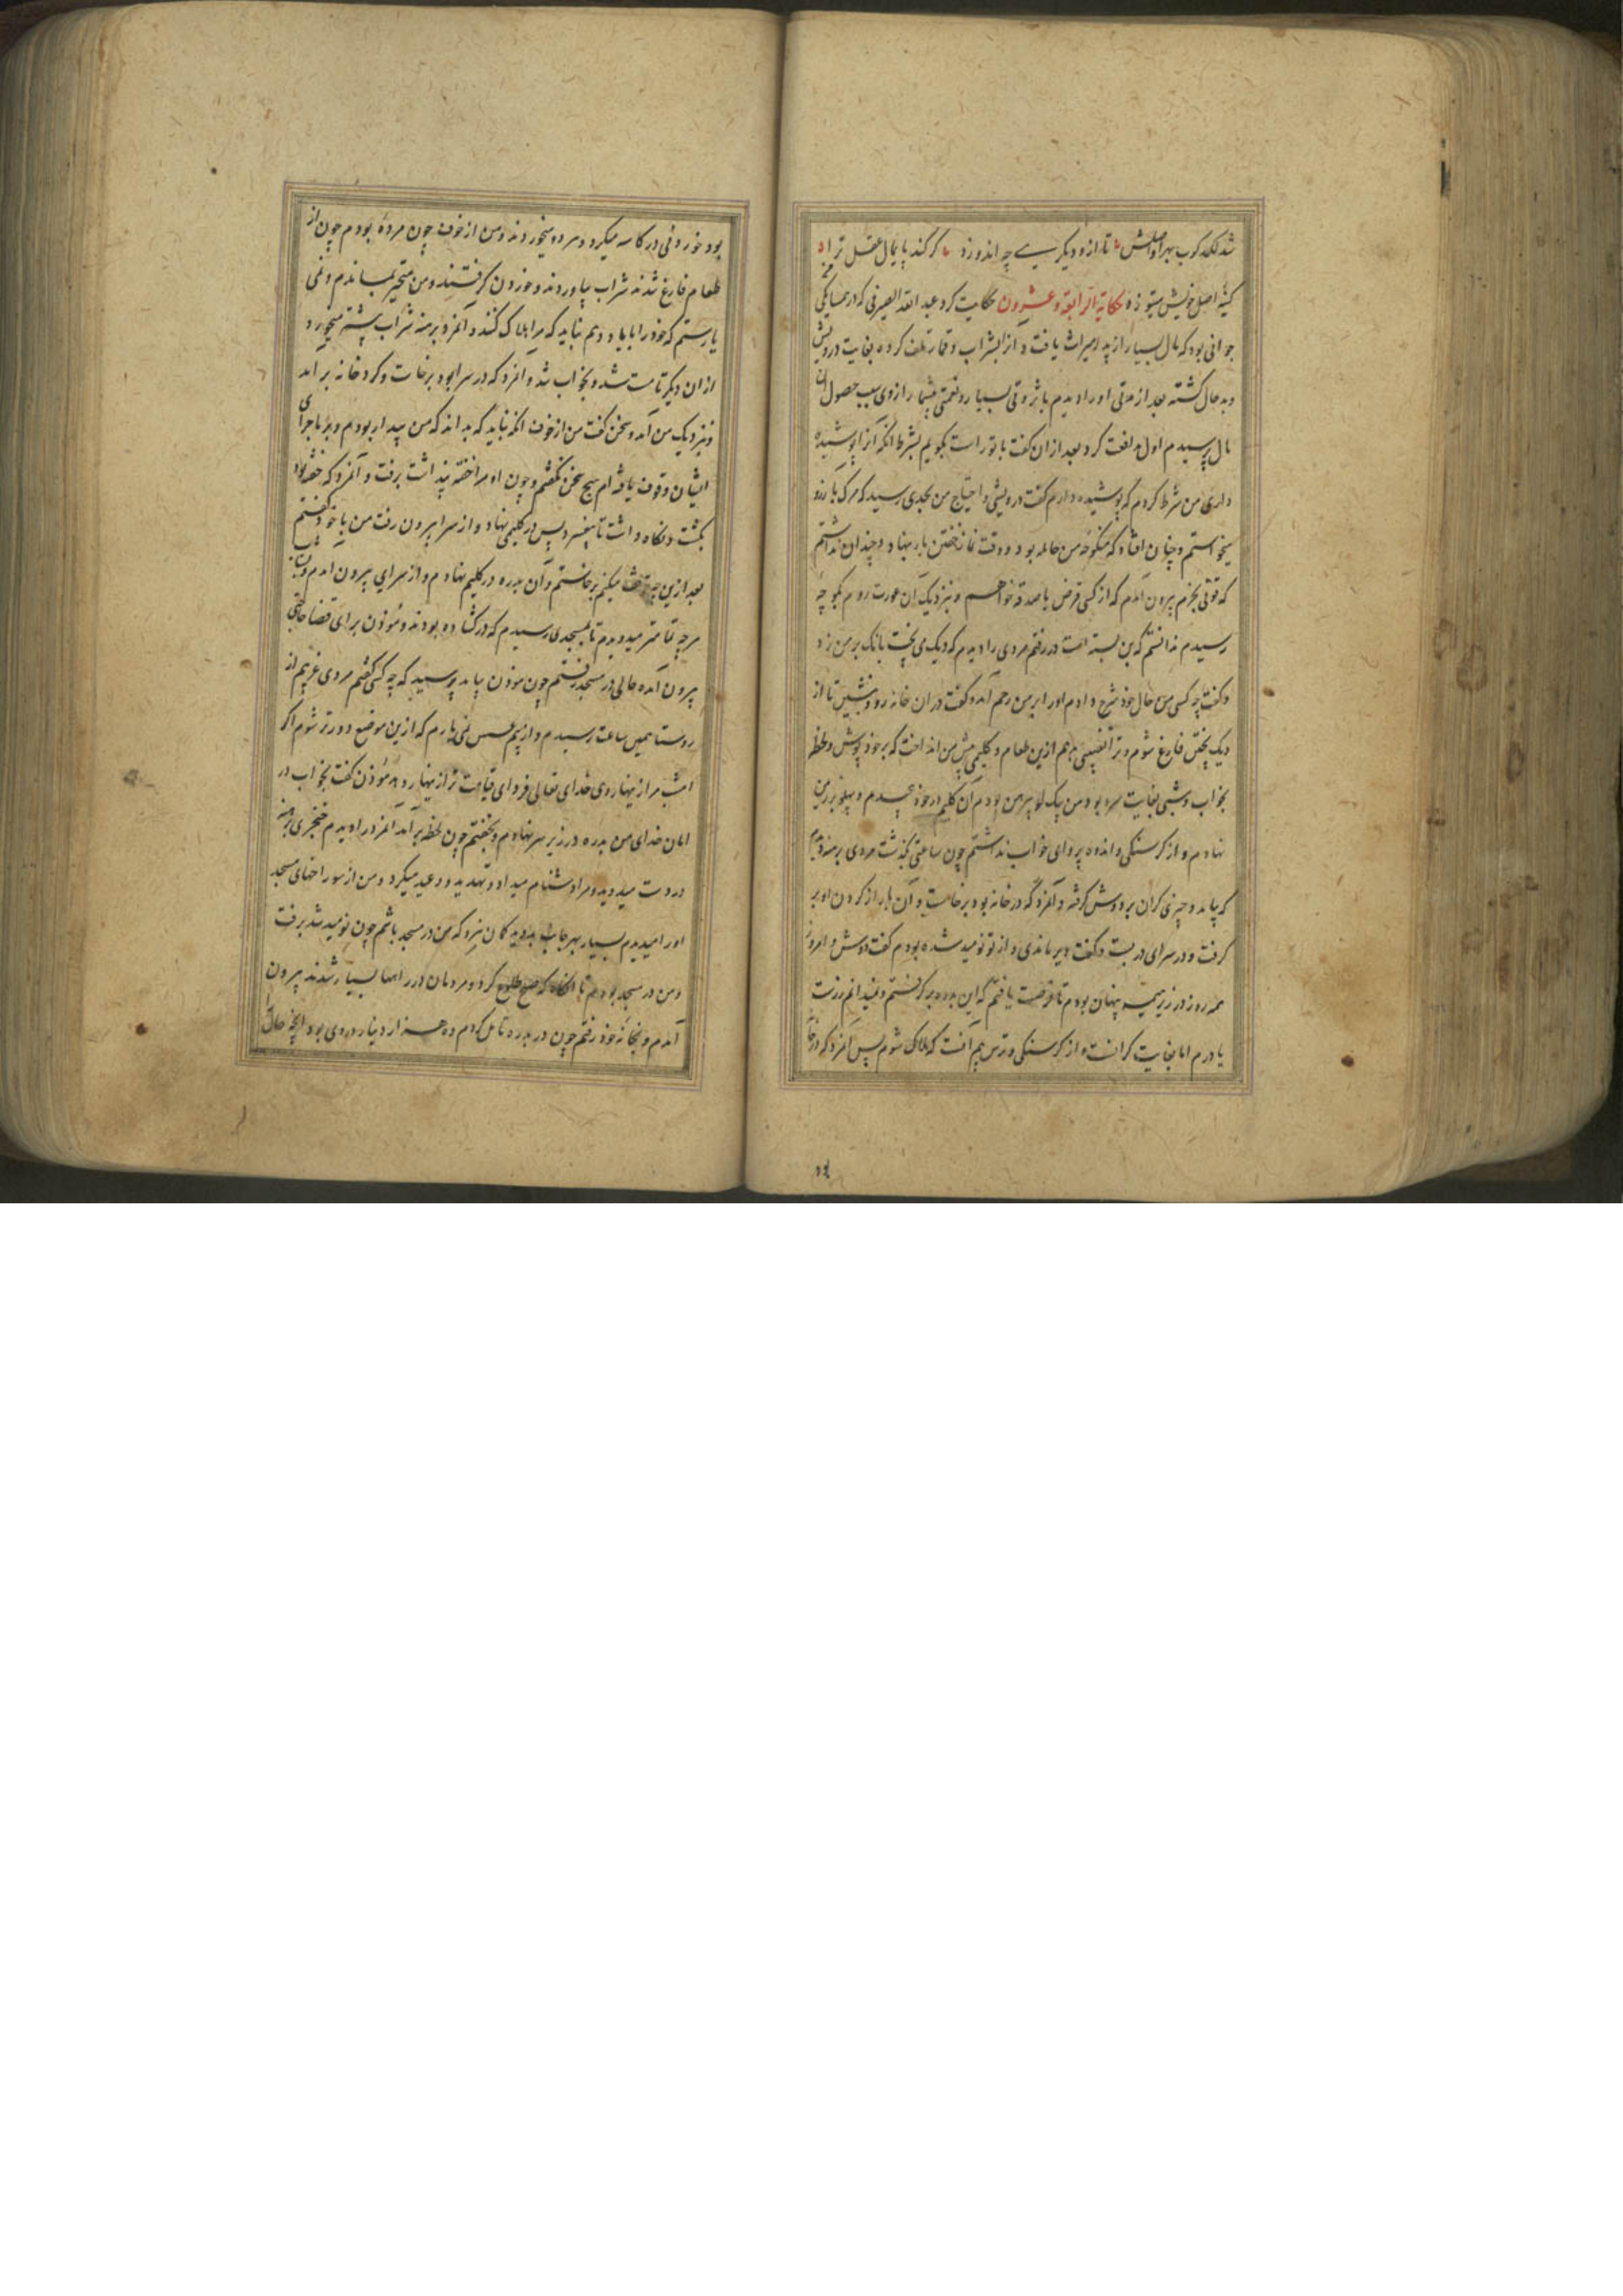 شد لکد کوب بهر اوباش تا ازو دیکرسے چه اندوزد کر کند پایمال عقل ترا
کینه اصل خویش بتوزد حکایة الرابعة وعشرون حکایت کرد عبد الله الصیرفی که از همسایکی
جوانی بود که مال بسیار از پدر میراث یافت و آنرا بشراب و قمار تلف کرده بغایت درویش
و بدحال کشته بعد از مدتی او را دیدم با ثروتی بسیار و نعمتی بیشمار ازوی سبب حصول آن
مال پرسیدم اول مدافعت کرد بعد ازان کفت با تو راست بکویم بشرط آنکه آنرا پوشیده
داری من شرط کردم که پوشیده دارم کفت درویشی و احتیاج من بحدی رسید که مرک بآرزو
میخواستم و چنان افتاد که منکوحه من حامله بود و وقت نماز خفتن بار بنهاد و چندان نداشتم
که قوتی بخرم بیرون آمدم که از کسی قرض یا صدقه خواهم و بنزدیک آن عورت روم بکوچه
رسیدم ندانستم که بن بسته است در رفتم مردی را دیدم که دیک می پخت بانک بر من زد
و کفت چه کسی من حال خود شرح دادم او را بر من رحم آمد و کفت در آن خانه رو و بنشین تا از
دیک پختن فارغ شوم و ترا نصیبی دهم ازین طعام و کلیمی پیش من انداخت که بر خود پوش و لحظه
بخواب و شبی بغایت سرد بود و من یک لو پیرهن بودم آن کلیم در خود پیچیدم و پهلو بر زمین
نهادم و از کرسنکی و اندوه پروای خواب نداشتم چون ساعتی بکذشت مردی برهنه دیدم
که بیامد و چیزی کران بر دوش کرفته و آنمرد که در خانه بود برخاست و آن بار از کردن او بر
کرفت و در سرای در بست و کفت دیر ماندی و از تو نومید شده بودم کفت دوش و امروز
همه روز در زیر هیمه پنهان بودم تا فرصت یافتم که این بدره برکرفتم و نمیدانم زرست
یا درم اما بغایت کرانست و از کرسنکی و ترس بیم آنست که هلاک شوم پس آنمرد که در خانه
بود خوردنی در کاسه میکرد و هر دو میخوردند و من از خوف چون مرده بودم چون از
طعام فارغ شدند شراب بیاوردند و خوردن کرفتند و من متحیر بماندم و نمی
یارستم که خود را با یاد دهم نباید که مرا هلاک کنند و آنمرد برهنه شراب بیشتر میخورد
ازان دیکر تا مست شد و بخواب شد و آنمرد که در سرا بود برخاست و کرد خانه برآمد
و بنزدیک من آمد و سخن کفت من از خوف آنکه نباید که بداند که من بیدار بودم و بر ماجرای
ایشان وقوف یافته ام هیچ سخن نکفتم و چون او مرا خفته پنداشت برفت و آنمرد که خفته بود
بکشت و نکاه داشت تا بیفسرد پس در کلیمی نهاد و از سرا بیرون رفت من با خود کفتم
بعد ازین چه توقف میکنم برخاستم و آن بدره در کلیم نهادم و از سرای بیرون آمدم و بشتاب
هرچه تمامتر میدویدم تا بمسجدی رسیدم که در کشاده بودند و مؤذن برای قضا حاجتی
بیرون آمده حالی در مسجد رفتم چون موذن بیامد پرسید که چه کسی کفتم مردی غریبم از
روستا همین ساعت رسیدم و از بیم عسس نمی یارم که ازین موضع دورتر شوم اکر
امشب مرا زینهار دی خدای تعالی فردای قیامت ترا زینهار دهد مؤذن کفت بخواب در
امان خدای من بدره در زیر سر نهادم و بخفتم چون لحظه برآمد آنمرد را دیدم خنجری برهنه
در دست میدوید و مرا دشنام میداد و تهدید و وعید میکرد و من از سوراخهای مسجد
او را میدیدم بسیار بهر جانب بدوید کمان نبرد که من در مسجد باشم چون نومید شد برفت
و من در مسجد بودم تا آنکاه که صبح طلوع کرد و مردمان در راهها بسیار شدند بیرون
آمدم و بخانه خود رفتم چون در بدره تامل کردم ده هزار دینار در وی بود آنچه حالی